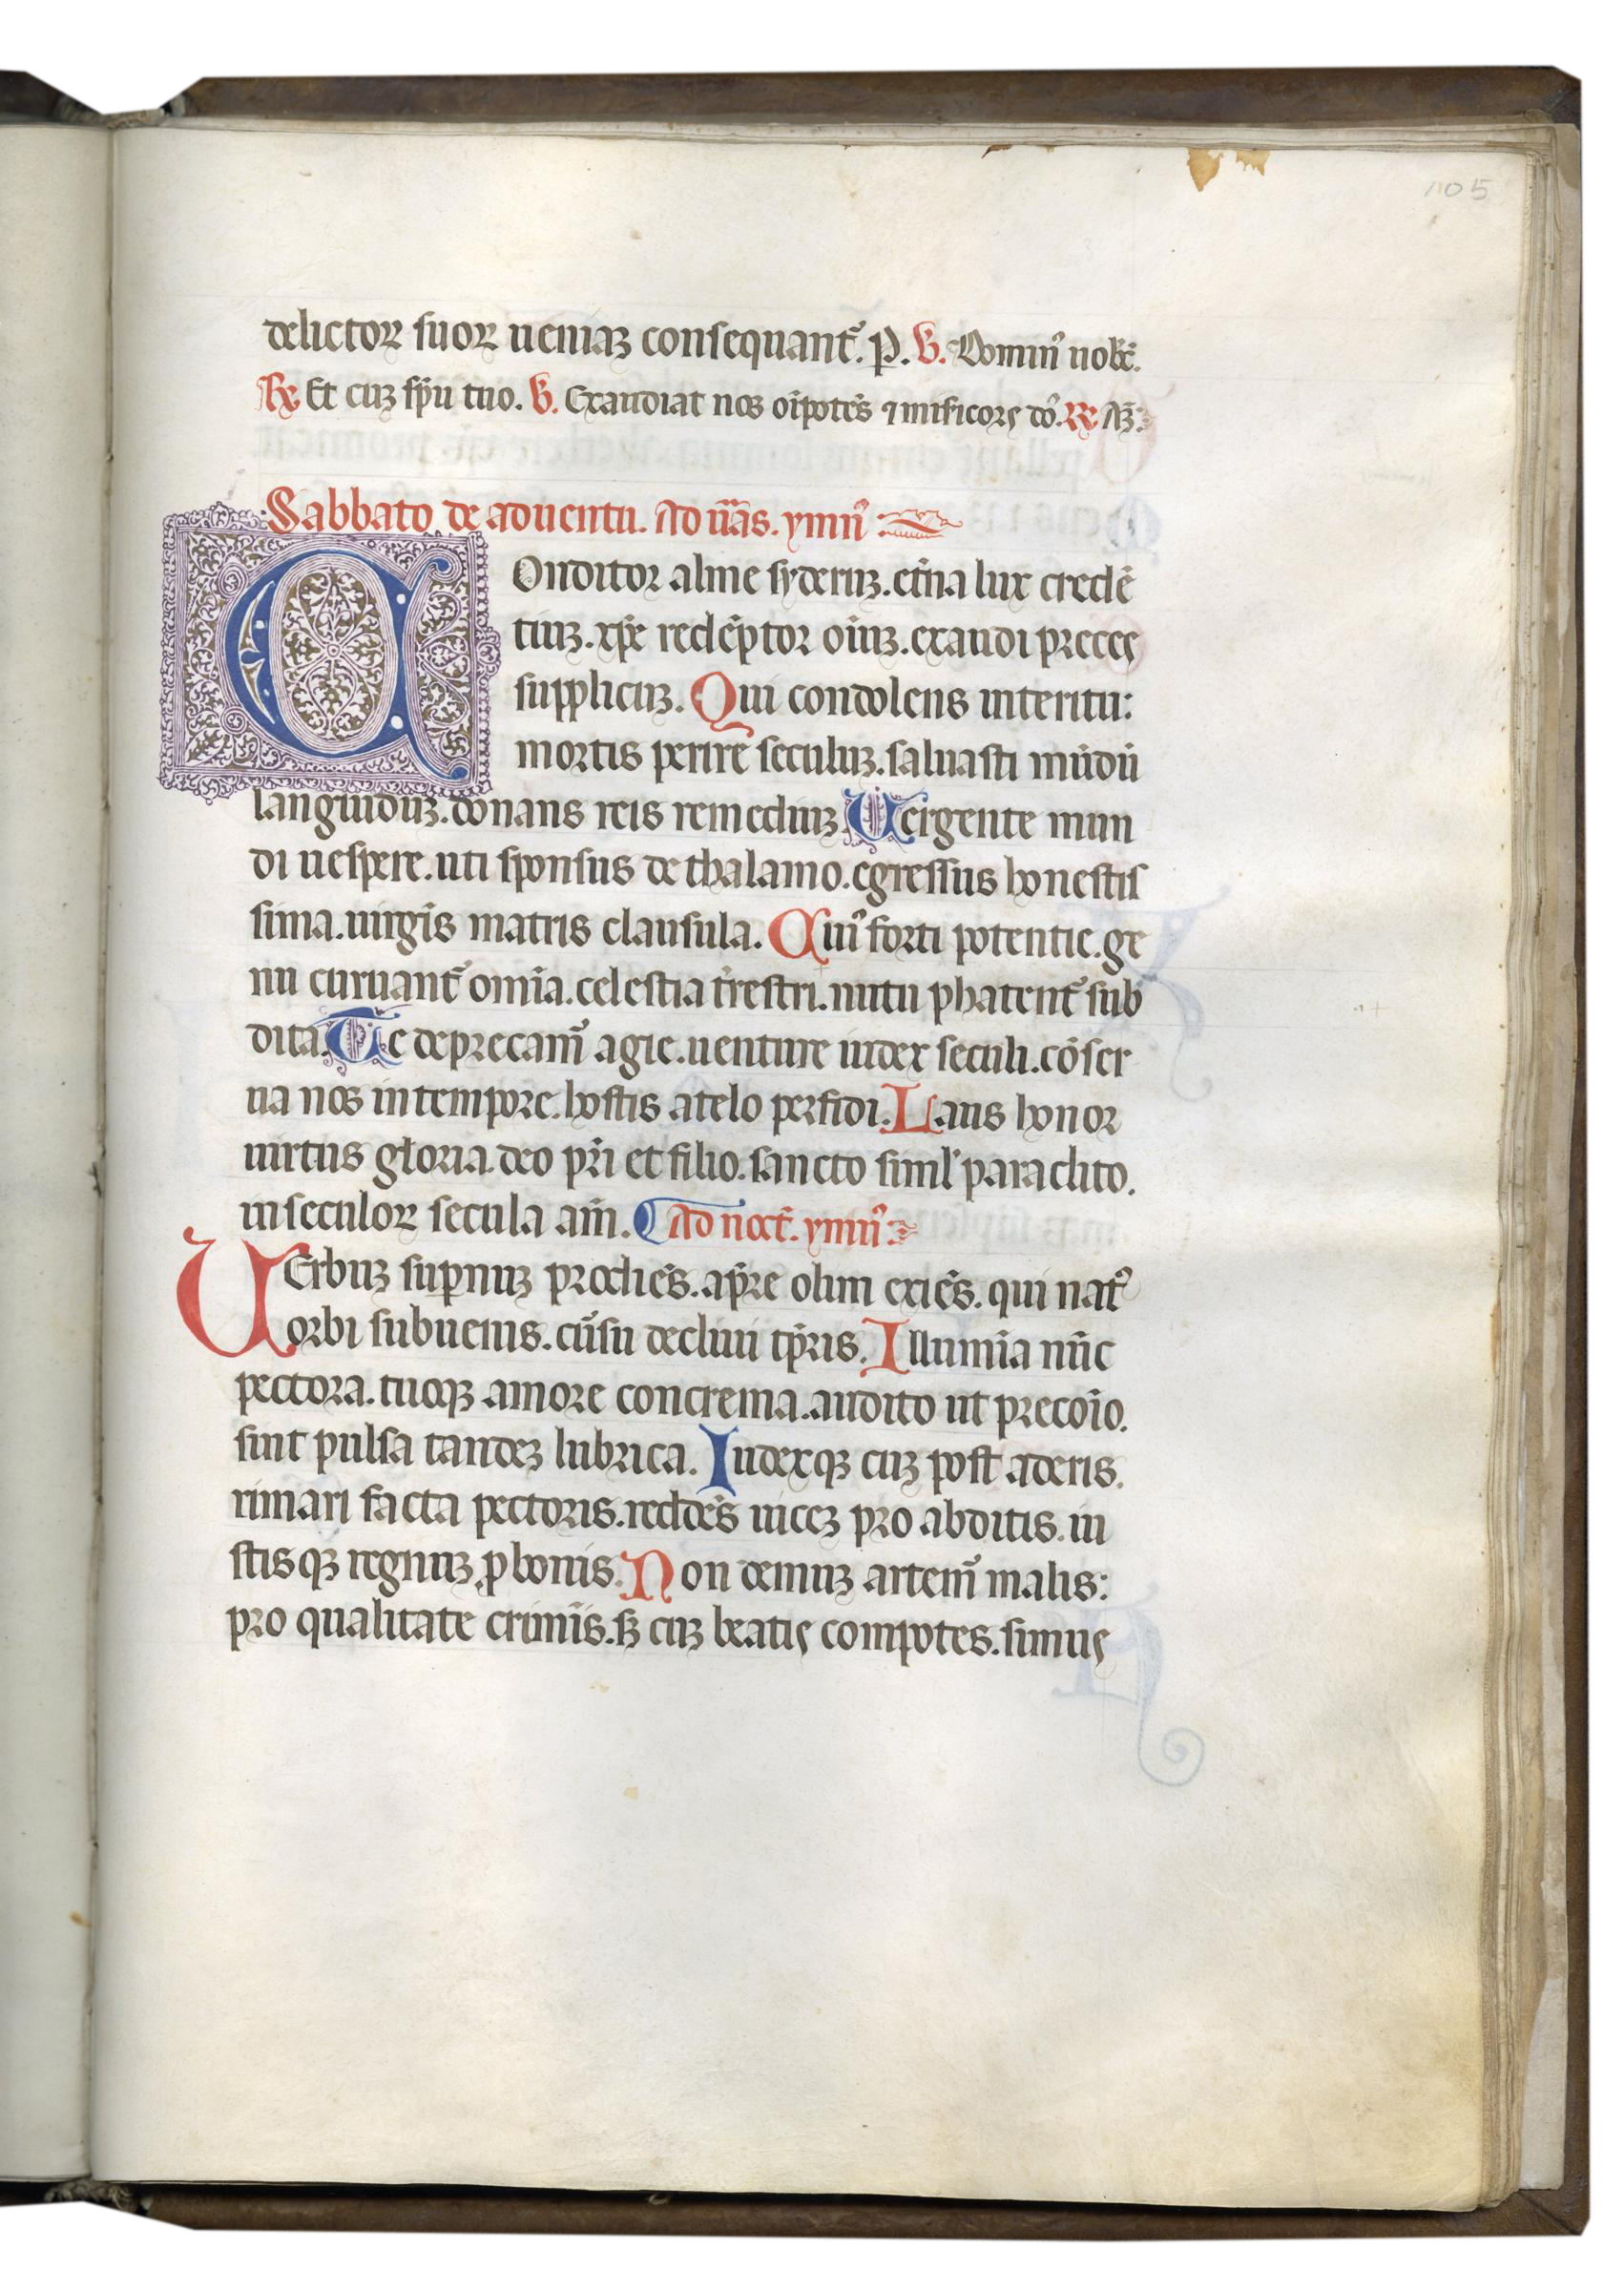 105
delictoꝝ suoꝝ ueniaꝫ consequant᷑. P. ꝟ. Domin᷒ uobc̄.
℟ Et cuꝫ sp̄u tuo. ꝟ. Exaudiat nos oīpotēs ⁊ misicors dō. ℟ Aꝫ.
Sabbato de aduentu. Ad uās. ymn᷒
COnditor alme syderuꝫ. et̄na lux credē
tiuꝫ. xp̄e redēptor oīuꝫ. exaudi preces
supplicuꝫ. Qui condolens interitu:
mortis perire seculuꝫ. saluasti mūdū
languiduꝫ. donans reis remediuꝫ. Uergente mun
di uespere. uti sponsus de thalamo. egressus honestis
sima. uirgīs matris clausula. Cui᷒ forti potentie. ge
nu curuant᷑ omīa. celestia t̄restri. nutu phatent᷑ sub
dita. Te deprecam᷒ agie. uenture iudex seculi. cōser
ua nos in tempore. hostis a telo perfidi. Laus honor
uirtus gloria. deo pr̄i et filio. sancto siml̓ paraclito.
in seculoꝝ secula am̄. Ad noct̄. ymn᷒
UErbuꝫ sup̄nuꝫ prodiēs. a pr̄e olim exiēs. qui nat᷒
orbi subuenis. cūsu decliui tp̄ris. Illumīa nūc
pectora. tuoqꝫ amore concrema. audito ut precōio.
sint pulsa tandeꝫ lubrica. Iudexqꝫ cuꝫ post aderis.
rimari facta pectoris. reddēs uiceꝫ pro abditis. iu
stisqꝫ regnuꝫ ꝓ bonis. Non demuꝫ artem᷒ malis:
pro qualitate crimīs. sꝫ cuꝫ beatis compotes. simus